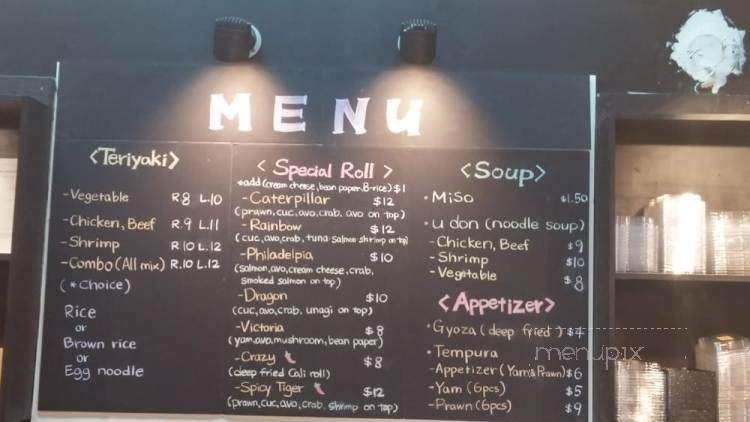 MENU
<Teriyaki>
-Vegetable R 8 L.10
-Chicken, Beef R.9 L.11
-Shrimp R.10 L.12
-Combo(All mix) R.10 L.12
(*Choice)
Rice
or
Brown rice
or
Egg noodle
< Special Roll >
*add (cream cheese, bean paper, B-rice) $1
-Caterpillar $12
(prawn, cuc, avo, crab, avo on top)
-Rainbow $12
(cuc, avo, crab, tuna salmon shrimp on top)
-Philadelpia $10
(salmon, avo, cream cheese, crab,
smoked salmon on top)
-Dragon $10
(cuc, avo, crab, unagi on top)
-Victoria $8
(yam, avo, mushroom, bean paper)
-Crazy $8
(deep fried Cali roll)
-Spicy Tiger $12
(prawn, cuc, avo, crab, shrimp on top)
<Soup>
• Miso $1.50
• udon (noodle soup)
-Chicken, Beef $9
-Shrimp $10
-Vegitable $8
<Appetizer>
• Gyoza (deep fried) $4
• Tempura
-Appetizer (Yam&Prawn) $6
-Yam (6pcs) $5
-Prawn (6pcs) $9
menupix